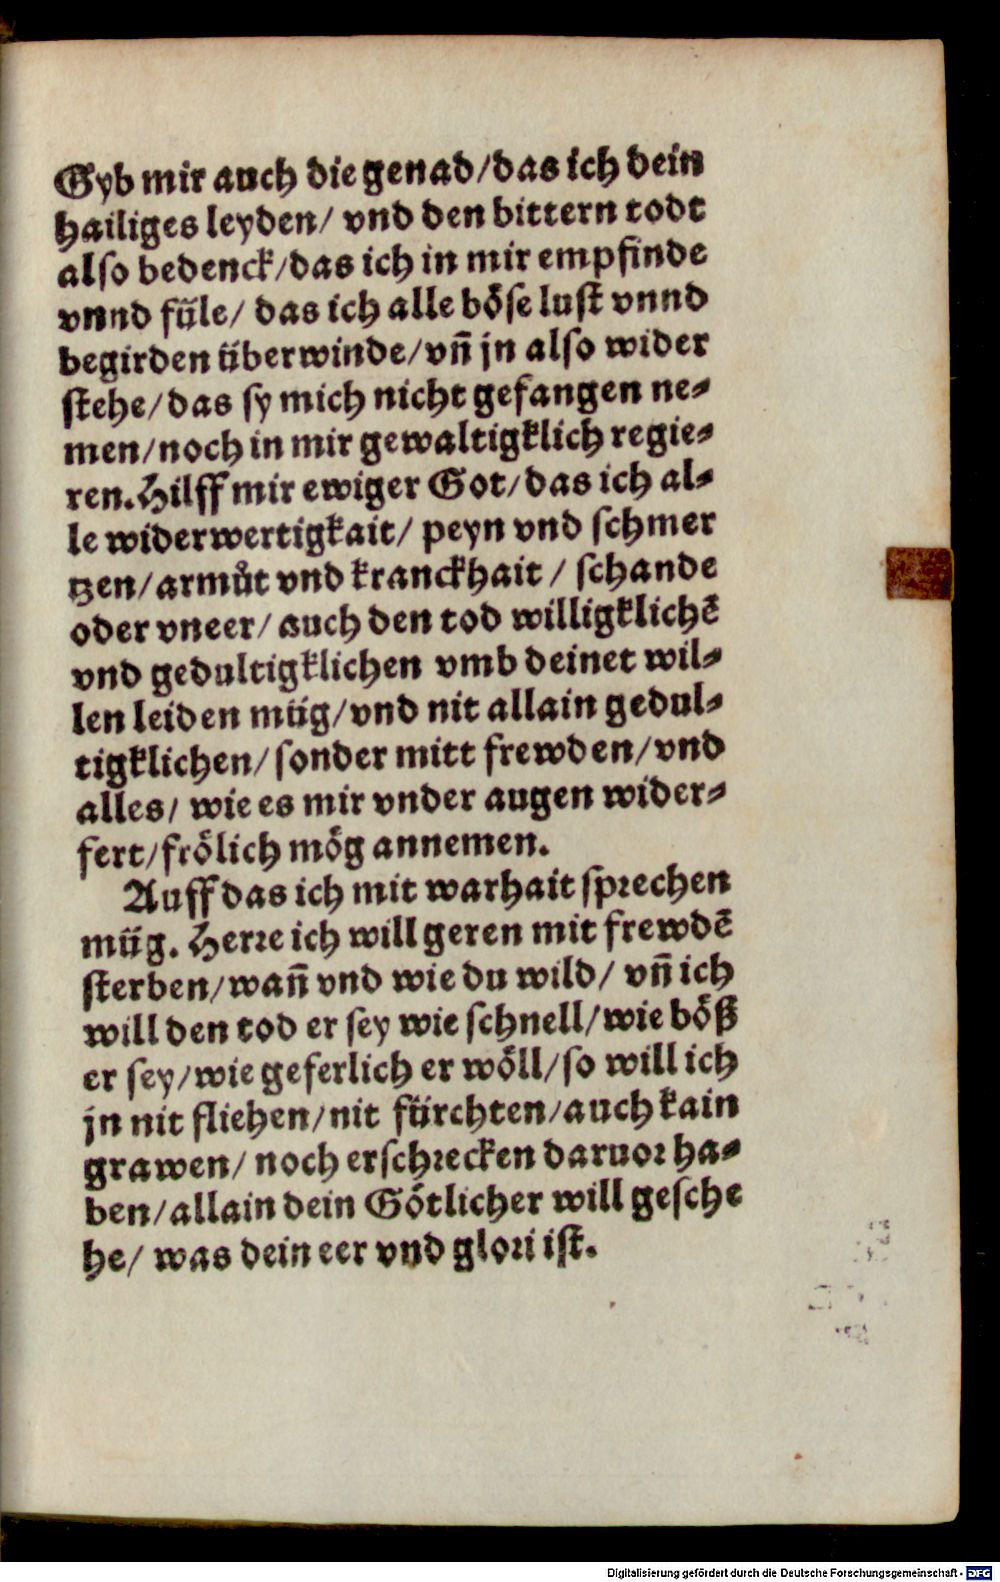 Gyb mir auch die genad/das ich dein
hailiges leyden/ vnd den bittern todt
also bedenck/das ich in mir empfinde
vnnd füle/ das ich alle böse lust vnnd
begirden überwinde/vñ jn also wider
stehe/das sy mich nicht gefangen ne⸗
men/noch in mir gewaltigklich regie⸗
ren. Hilff mir ewiger Got/das ich al⸗
le widerwertigkait/ peyn vnd schmer
tzen/armůt vnd kranckhait / schande
oder vneer/ auch den tod willigklichẽ
vnd gedultigklichen vmb deinet wil⸗
len leiden müg/vnd nit allain gedul⸗
tigklichen/sonder mitt frewden/vnd
alles/ wie es mir vnder augen wider⸗
fert/frölich mög annemen.
Auff das ich mit warhait sprechen
müg. Herre ich will geren mit frewdẽ
sterben/wañ vnd wie du wild/ vñ ich
will den tod er sey wie schnell/wie böß
er sey/wie geferlich er wöll/so will ich
jn nit fliehen/nit fürchten/auch kain
grawen/ noch erschrecken daruor ha⸗
ben/allain dein Götlicher will gesche
he/ was dein eer vnd glori ist.
Digitalisierung gefördert durch die Deutsche Forschungsgemeinschaft - DFG